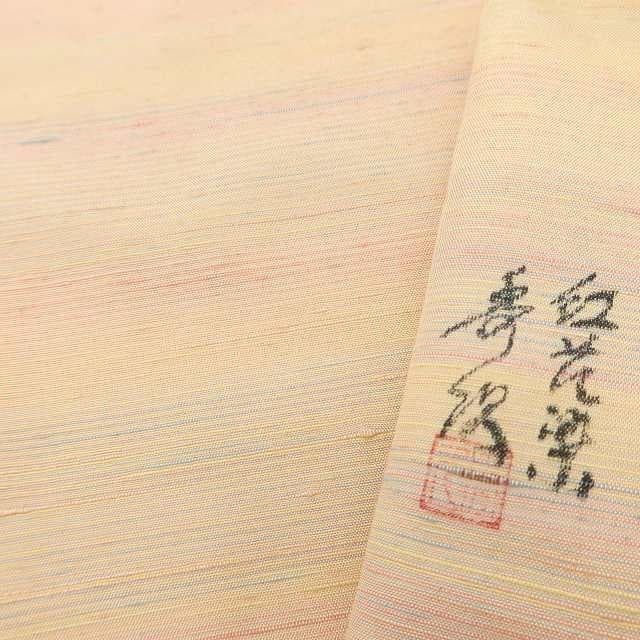 紅花染
寿紀